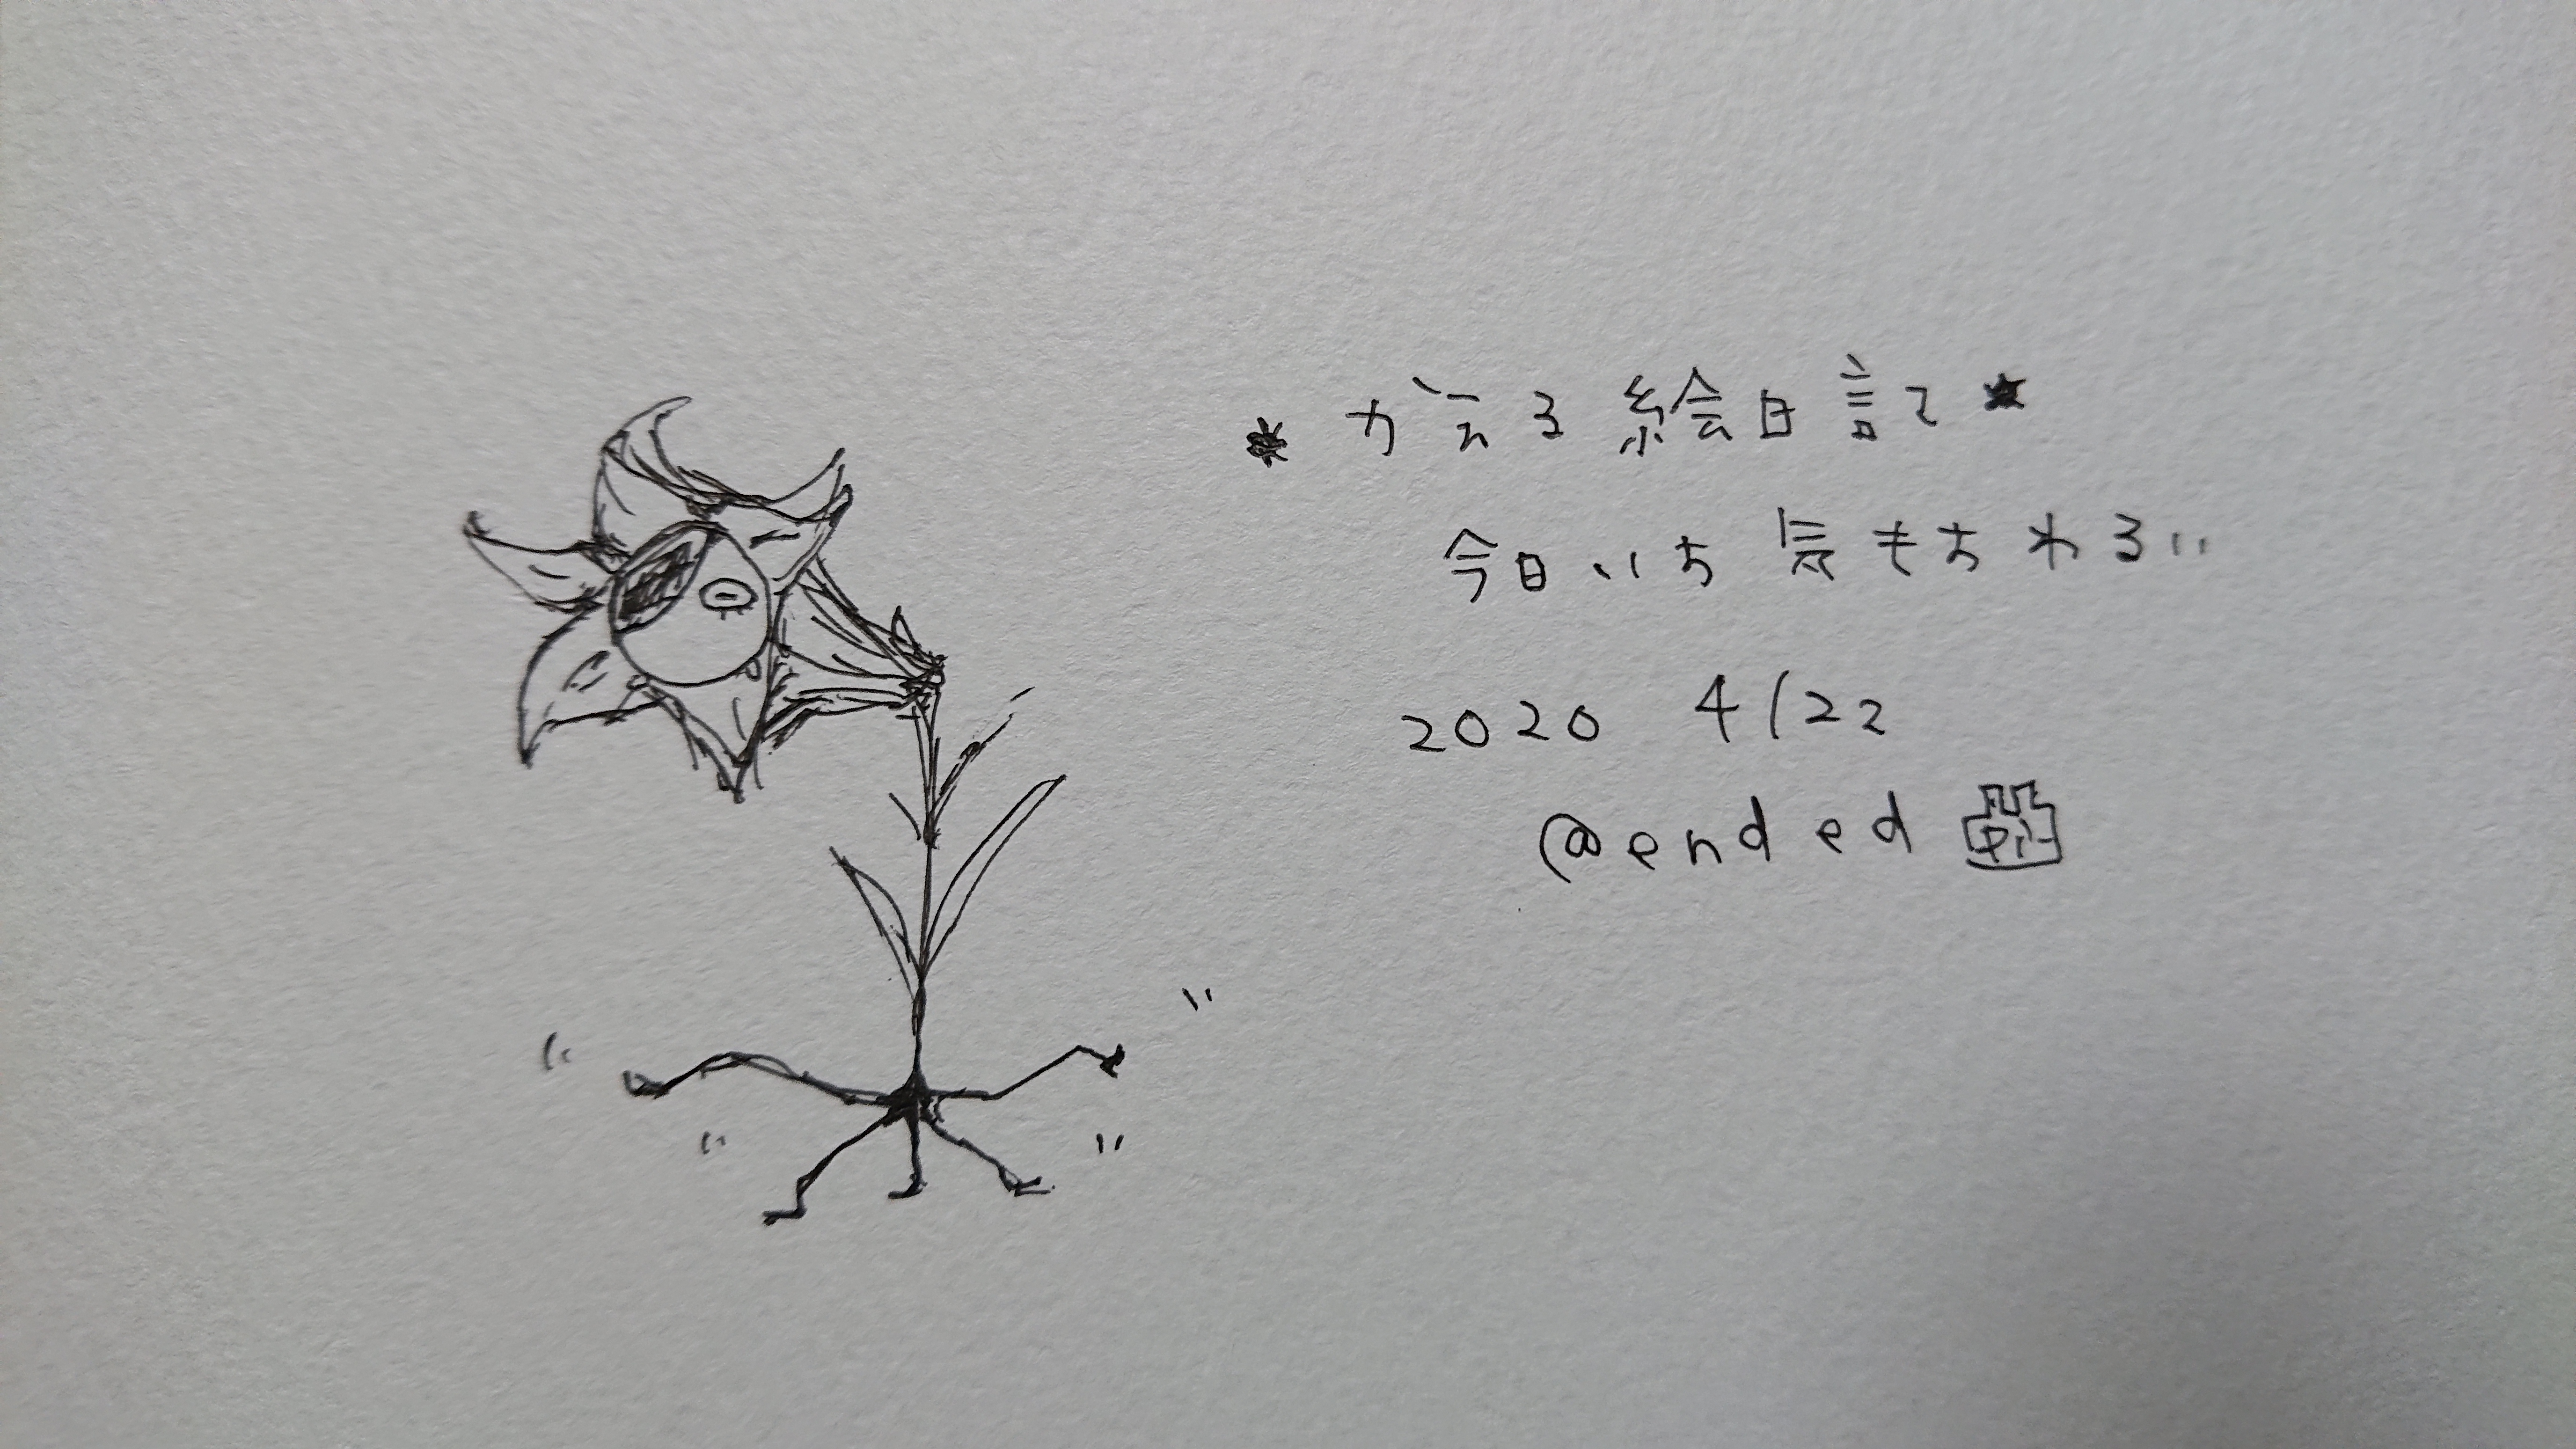 * がえる絵日記 *
今日いち気もちわるい
2020 4/22
@ended